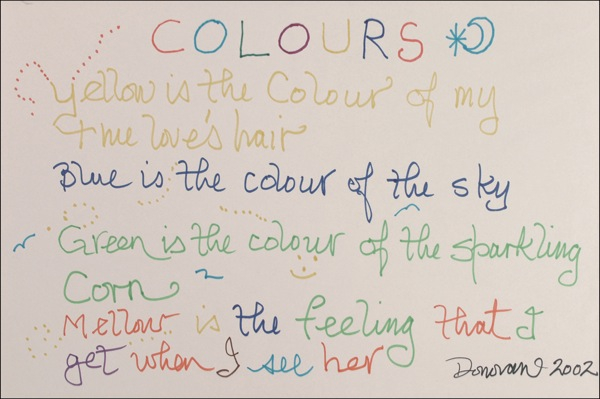 COLOURS
Yellow is the Colour of my
true love's hair
Blue is the colour of the sky
Green is the colour of the sparkling
Corn
Mellow is the feeling that I
get when I see her
Donovan 2002